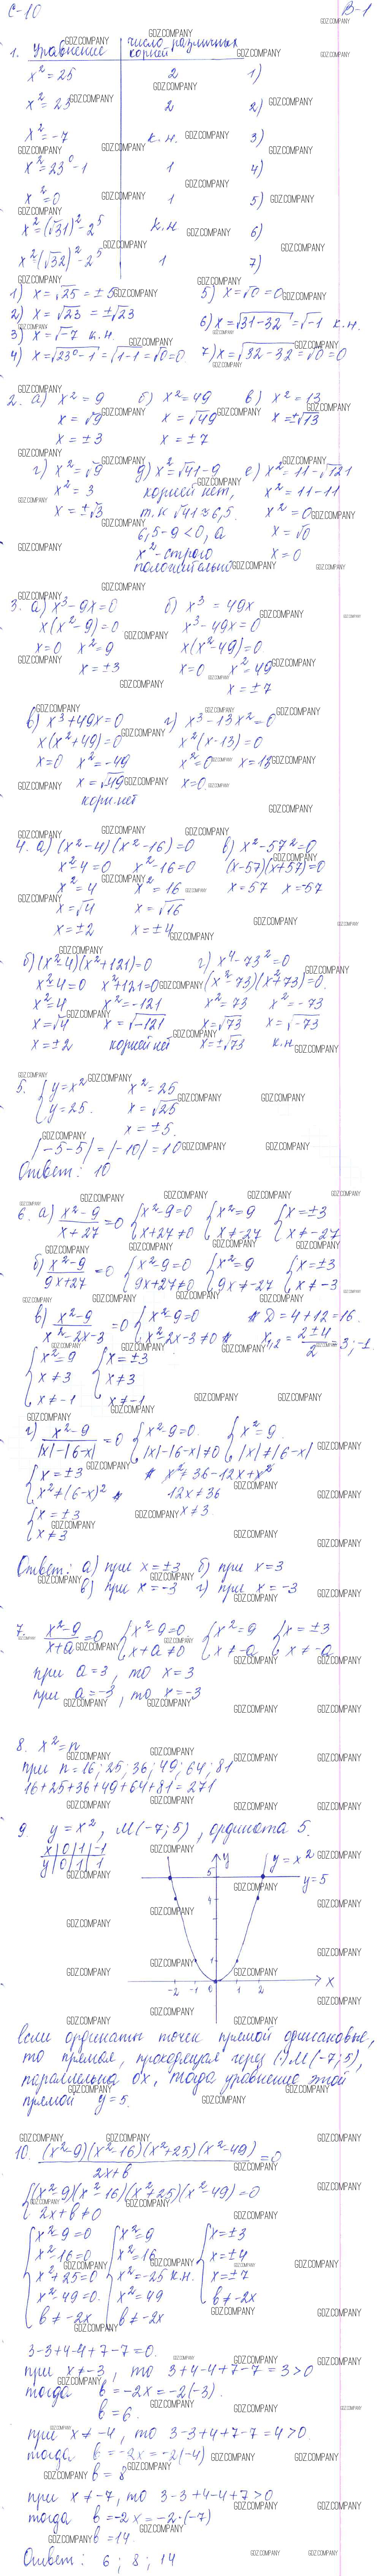 С-10 В-1
1. Уравнение число различных корней
x² = 25 2 1)
x² = 23 2 2)
x² = -7 к.н. 3)
x² = 23⁰ - 1 1 4)
x² = 0 1 5)
x² = (√31)² - 2⁵ к.н 6)
x² = (√32)² - 2⁵ 1 7)
1) x = √25 = ±5 5) x = √0 = 0
2) x = √23 = ±√23 6) x = √31-32 = √-1 к.н.
3) x = √-7 к.н. 7) x = √32-32 = √0 = 0
4) x = √23⁰-1 = √1-1 = √0 = 0
2. а) x² = 9 б) x² = 49 в) x² = 13
x = √9 x = √49 x = ±√13
x = ±3 x = ±7
г) x² = √9 д) x² = √41-9 е) x² = 11-√121
x² = 3 корней нет, x² = 11-11
x = ±√3 т.к √41 ≈ 6,5. x² = 0
6,5-9 < 0, а x = √0
x² - строго x = 0
положительны
3. а) x³ - 9x = 0 б) x³ = 49x
x(x²-9) = 0 x³ - 49x = 0
x = 0 x² = 9 x(x²-49) = 0
x = ±3 x = 0 x² = 49
x = ±7
в) x³ + 49x = 0 г) x³ - 13x² = 0
x(x²+49) = 0 x²(x-13) = 0
x = 0 x² = -49 x² = 0 x = 13
x = √-49 x = 0.
корн.нет
4. а) (x²-4)(x²-16) = 0 в) x² - 57² = 0
x²-4 = 0 x²-16 = 0 (x-57)(x+57) = 0
x² = 4 x² = 16 x = 57 x = -57
x = √4 x = √16
x = ±2 x = ±4
б) (x²-4)(x²+121) = 0 г) x⁴ - 73² = 0
x²-4 = 0 x²+121 = 0 (x²-73)(x²+73) = 0.
x² = 4 x² = -121 x² = 73 x² = -73
x = √4 x = √-121 x = √73 x = √-73
x = ±2 корней нет x = ±√73 к.н.
5. { y = x² x² = 25
y = 25. x = √25
x = ±5
|-5-5| = |-10| = 10
Ответ: 10
6. а) x²-9 / x+27 = 0 { x²-9 = 0 x+27 ≠ 0 { x² = 9 x ≠ -27 { x = ±3 x ≠ -27
б) x²-9 / 9x+27 = 0 { x²-9 = 0 9x+27 ≠ 0 { x² = 9 9x ≠ -27 { x = ±3 x ≠ -3
в) x²-9 / x²-2x-3 = 0 { x²-9 = 0 x²-2x-3 ≠ 0 * * D = 4+12 = 16. x₁,₂ = 2±4 / 2 = 3; -1.
{ x² = 9 { x = ±3
x ≠ 3 x ≠ 3
x ≠ -1 x ≠ -1
г) x²-9 / |x|-|6-x| = 0 { x²-9 = 0. |x|-|6-x| ≠ 0 { x² = 9. |x| ≠ |6-x|
{ x = ±3 * x² ≠ 36-12x+x²
x² ≠ (6-x)² * 12x ≠ 36
{ x = ±3 x ≠ 3.
x ≠ 3
Ответ: а) при x = ±3 б) при x = 3
в) при x = -3 г) при x = -3
7. x²-9 / x+a = 0 { x²-9 = 0 x+a ≠ 0 { x² = 9 x ≠ -a { x = ±3 x ≠ -a
при a = 3, то x = 3
при a = -3, то x = -3
8. x² = n
при n = 16; 25; 36; 49; 64; 81
16+25+36+49+64+81 = 271
9. y = x², М(-7; 5), ордината 5.
x 0 1 -1
y 0 1 1
y y = x²
5 y = 5
4
1
-2 -1 0 1 2 x
если ординаты точек прямой одинаковые,
то прямая, проходящая через (·) М(-7; 5),
параллельна Ox, тогда уравнение этой
прямой y = 5.
10. (x²-9)(x²-16)(x²+25)(x²-49) / 2x+b = 0
{ (x²-9)(x²-16)(x²+25)(x²-49) = 0
2x+b ≠ 0
{ x²-9 = 0 { x² = 9 { x = ±3
x²-16 = 0 x² = 16 x = ±4
x²+25 = 0 x² = -25 к.н. x = ±7
x²-49 = 0. x² = 49 b ≠ -2x
b ≠ -2x b ≠ -2x
3-3+4-4+7-7 = 0.
при x ≠ -3, то 3+4-4+7-7 = 3 > 0
тогда b = -2x = -2(-3).
b = 6.
при x ≠ -4, то 3-3+4+7-7 = 4 > 0.
тогда b = -2x = -2(-4)
b = 8
при x ≠ -7, то 3-3+4-4+7 > 0
тогда b = -2x = -2·(-7)
b = 14.
Ответ: 6; 8; 14
GDZ.COMPANY